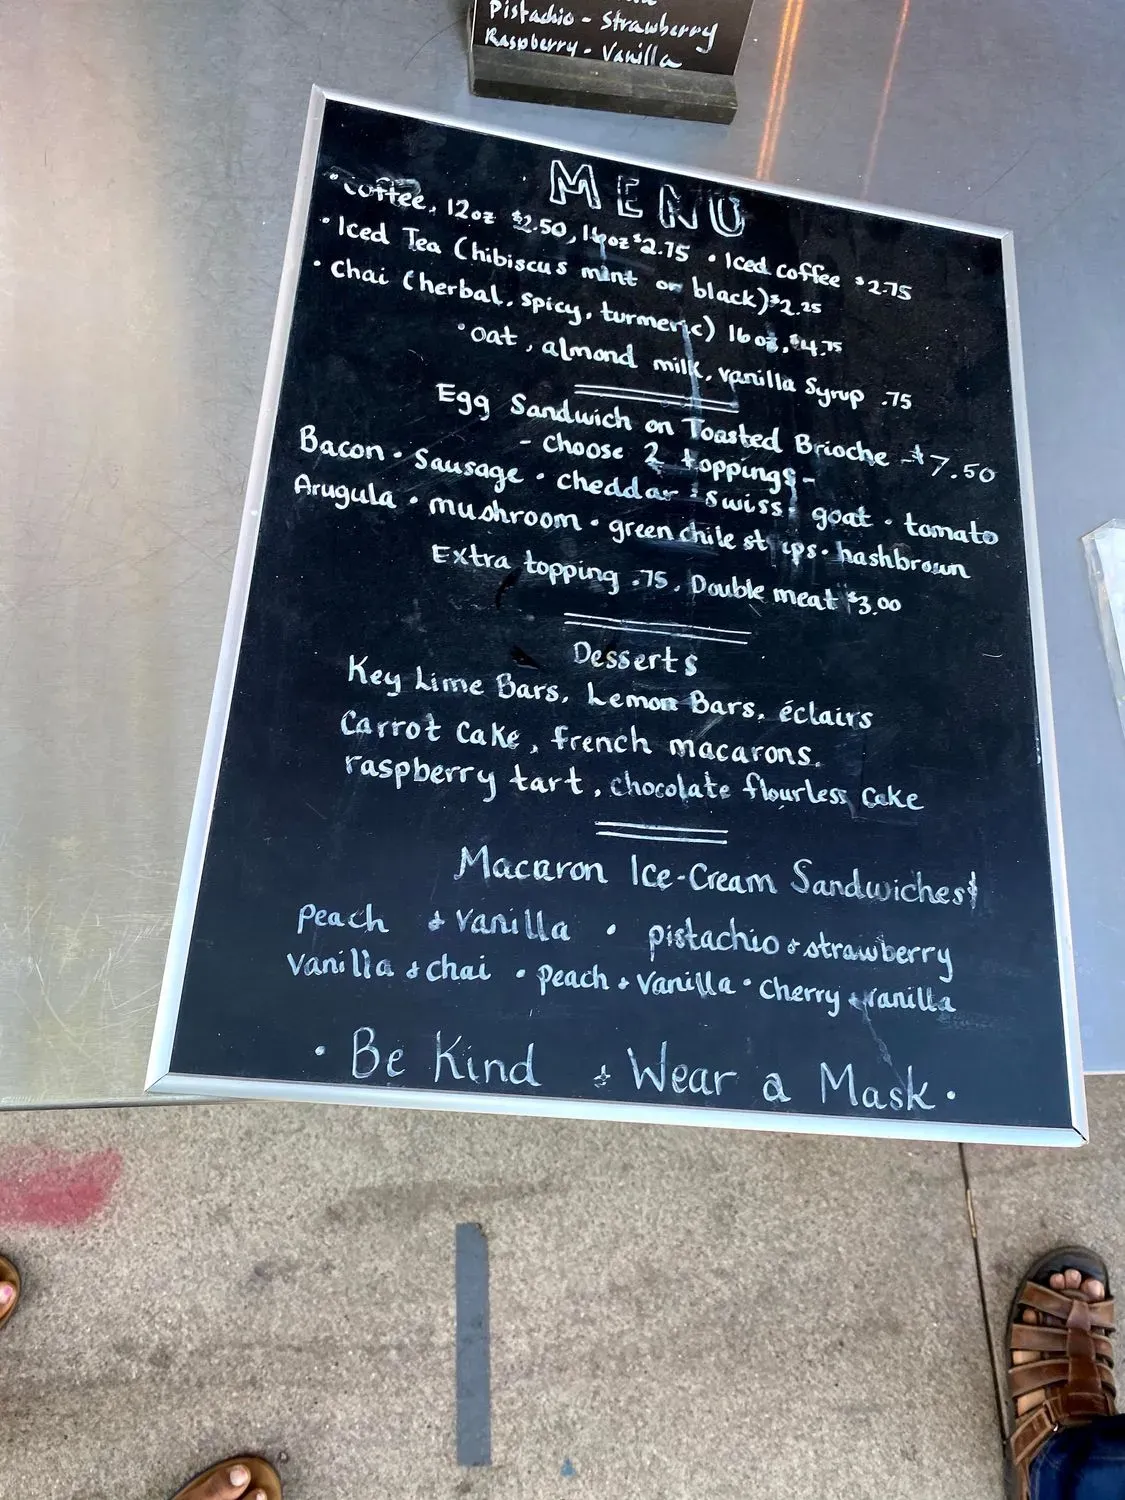 Pistachio - Strawberry
Raspberry - Vanilla
MENU
• Coffee, 12oz $2.50, 16oz $2.75 • Iced coffee $2.75
• Iced Tea (hibiscus mint or black) $2.25
• Chai (herbal, spicy, turmeric) 16oz, $4.75
• oat, almond milk, vanilla Syrup .75
Egg Sandwich on Toasted Brioche - $7.50
- Choose 2 toppings -
Bacon • Sausage • cheddar • swiss • goat • tomato
Arugula • mushroom • green chile st ips • hashbrown
Extra topping .75. Double meat $3.00
Desserts
Key Lime Bars, Lemon Bars, éclairs
Carrot Cake, french macarons.
raspberry tart, chocolate flourless Cake
Macaron Ice-Cream Sandwiches
Peach + Vanilla • pistachio + strawberry
Vanilla + chai • peach + Vanilla • Cherry + Vanilla
• Be Kind + Wear a Mask •